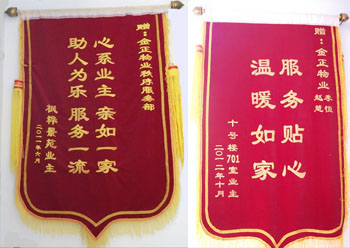 赠：金正物业秩序服务部
心系业主 亲如一家
助人为乐 服务一流
枫桦景苑业主
二〇一一年六月
赠：金正物业
李恒
赵慧
服务贴心
温暖如家
十号楼701室业主
二〇一二年十月